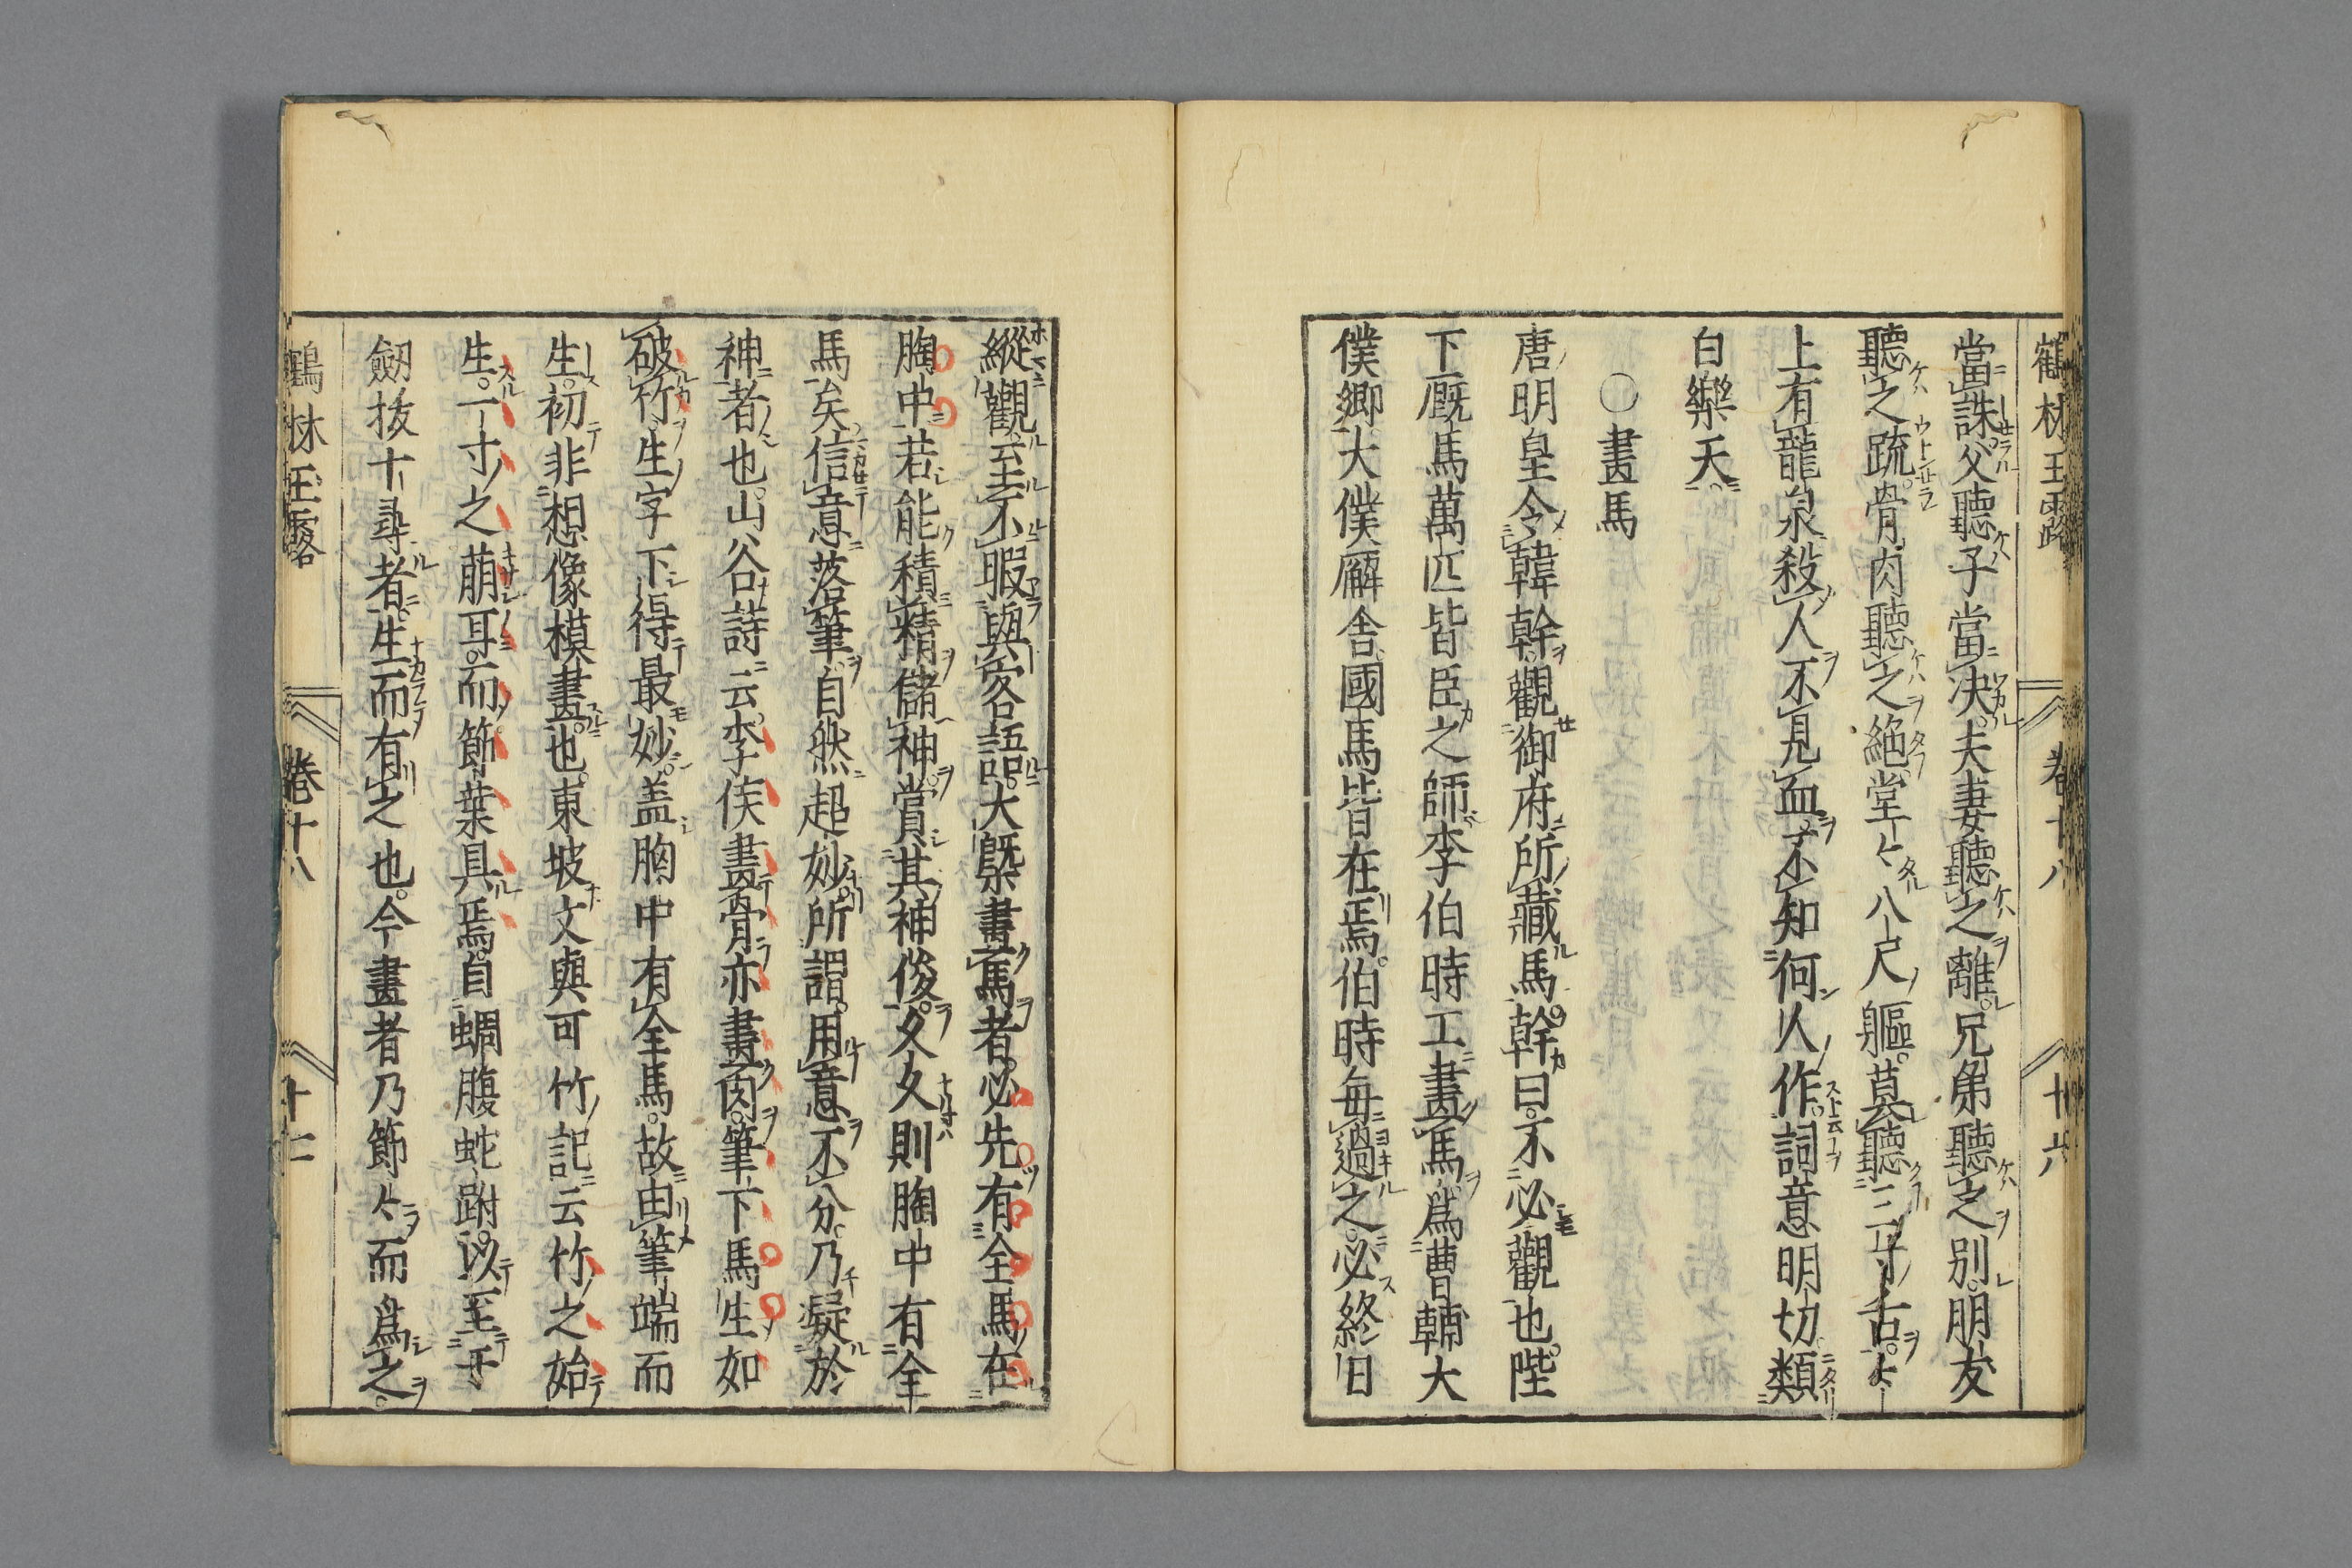 鶴林玉露 卷十八 十六
當誅父聽子當决夫妻聽之離兄弟聽之別朋友
聽之疏骨肉聽之絕堂々八尺軀莫聽三寸舌々
上有龍泉殺人不見血予不知何人作詞意明切類
白樂天
〇畫馬
唐明皇令韓幹觀御府所藏馬幹曰不必觀也陛
下厩馬萬匹皆臣之師李伯時工畫馬爲曹輔大
僕卿大僕廨舎國馬皆在焉伯時每過之必終日
縱觀至不暇與客語大槩畫馬者必先有全馬在
胸中若能積精儲神賞其神俊久久則胸中有全
馬矣信意落筆自然超妙所謂用意不分乃凝於
神者也山谷詩云李侯畫骨亦畫肉筆下馬生如
破竹生字下得最妙盖胸中有全馬故由筆端而
生初非想像模畫也東坡文與可竹記云竹之始
生一寸之萠耳而節葉具焉自蜩腹蛇蚹以至于
劒拔十尋者生而有之也今畫者乃節々而爲之
鶴林玉露 卷十八 十七